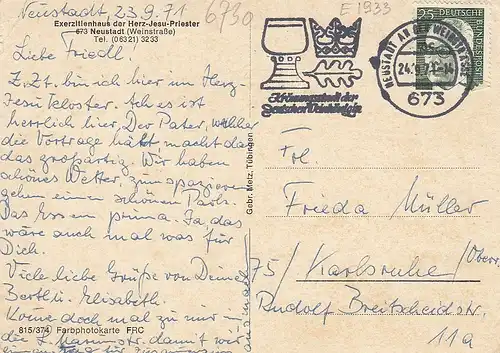 Neustadt 23.9.71
673a
E 1933
Exerzitienhaus der Herz-Jesu-Priester
673 Neustadt (Weinstraße)
Tel. (06321) 3233
Liebe Friedl.
Z. Zt. bin ich hier im Herz-
Jesu Kloster. Ach es ist
herrlich hier, Der Pater, welcher
die Vorträge hält macht das
das großartig. Wir haben
schönes Wetter, zum spazieren
gehen einen schönen Park.
Das Essen prima. Ja, das
wäre auch mal was für
Dich.
Viele liebe Grüße von Deiner
Berthl u. Elisabeth.
Komme doch mal zu mir in
die damit wir
815/374 Farbphotokarte FRC
Gebr. Metz, Tübingen
Krönungsstadt der
Deutschen Weinkönigin
NEUSTADT AN DER WEINSTRASSE
24.9.71-14
673
25 DEUTSCHE
BUNDESPOST
Frl.
Frieda Müller
75/ Karlsruhe/
Rudolf Breitscheidstr
11a